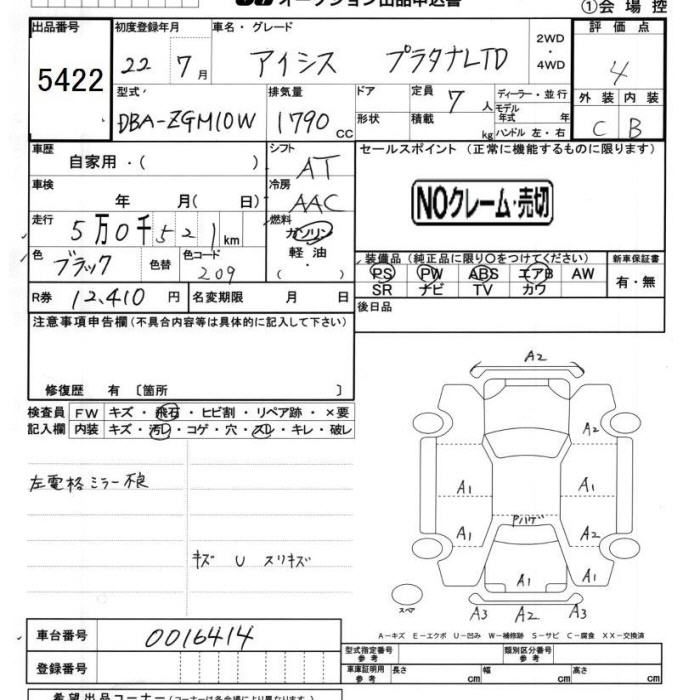 オークション出品申込書
①会場控
出品番号
5422
初度登録年月
22 7月
車名・グレード
アイシス プラタナLTD
2WD
・
4WD
評価点
4
型式
DBA-ZGM10W
排気量
1790 CC
ドア
形状
定員 7 人
積載 kg
ディーラー・並行
モデル
年式 年
ハンドル 左・右
外装 内装
C B
車歴
自家用・( )
シフト
AT
セールスポイント (正常に機能するものに限ります)
車検
年 月( 日)
冷房
AAC
NOクレーム・売切
走行
5万0千521km
燃料
ガソリン
軽油
( )
色
ブラック
色替
色コード
209
装備品(純正品に限り○をつけてください)
新車保証書
PS PW ABS エアB AW
SR ナビ TV カワ
有・無
R券 12,410 円
名変期限 月 日
後日品
注意事項申告欄(不具合内容等は具体的に記入して下さい)
修復歴 有 〔箇所 〕
検査員
記入欄
FW キズ・飛石・ヒビ割・リペア跡・×要
内装 キズ・汚レ・コゲ・穴・スレ・キレ・破レ
左電格ミラー不良
キズ U スリキズ
A2
A2
A1
A1
Pハゲ
A1
A2
A1
A1
スペア
A3
A2
A3
A-キズ E-エクボ U-凹み W-補修跡 S-サビ C-腐食 XX-交換済
車台番号
0016414
登録番号
型式指定番号
参考
類別区分番号
参考
車庫証明用
参考
長さ cm
幅 cm
高さ cm
希望出品コーナー(コーナーは各会場により異なります)